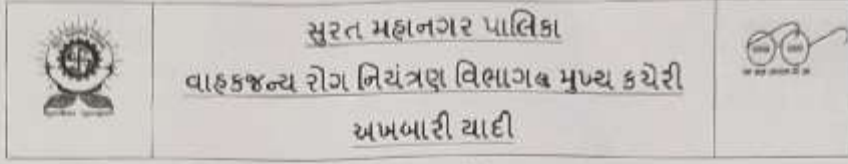 સુરત મહાનગર પાલિકા
વાહકજન્ય રોગ નિયંત્રણ વિભાગલ મુખ્ય કચેરી
અખબારી યાદી